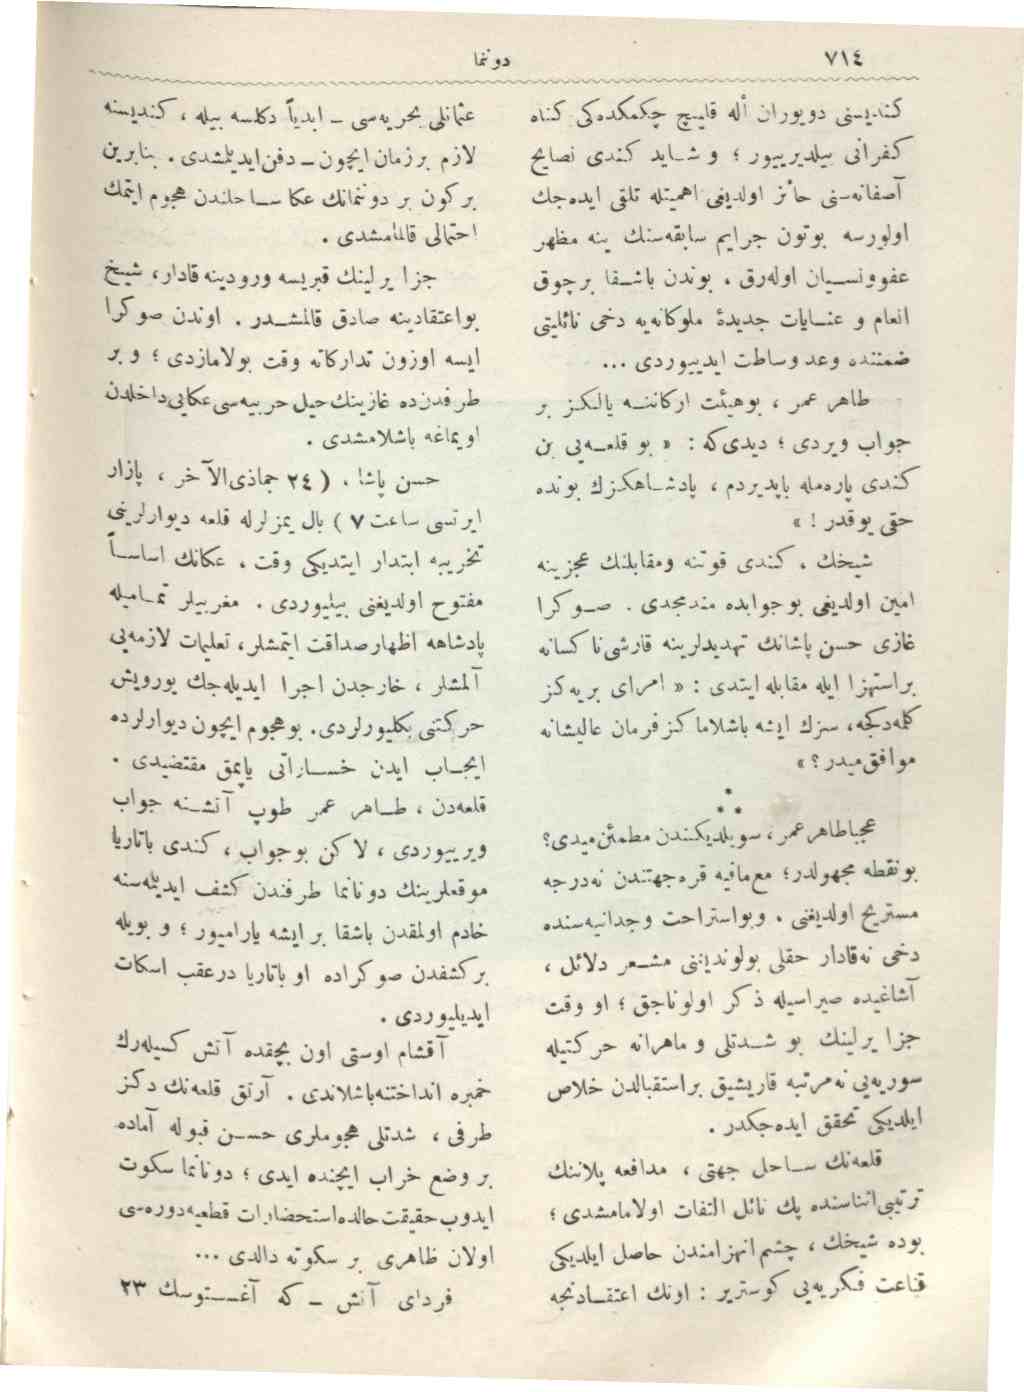 ٧١٤
دوننما
كنديسنى دويوران أله قليچ چكمكده‌كى كناه
كفرانى بيلديرييور ؛ و شايد كندى نصايح
آصفانه‌سنى حائز اولديغى اهميتله تلقى ايده‌جك
اولورسه بوتون جرايم سابقه‌سنك ينه مظهر
عفوونسيان اوله‌رق ، بوندن باشقا برچوق
انعام و عنايات جديدهٔ ملوكانه‌يه دخى نائليتى
ضمننده وعد وساطت ايدييوردى ...
طاهر عمر ، بوهيئت اركاننه يالكز بر
جواب ويردى ؛ ديدى‌كه : « بو قلعه‌يى بن
كندى پاره‌مله ياپديردم ، پادشاهكزك بونده
حقى يوقدر ! »
شيخك ، كندى قوتنه ومقابلنك عجزينه
امين اولديغى بو جوابده مندمجدى . صوكرا
غازى حسن پاشانك تهديدلرينه قارشى نا كسانه
براستهزا ايله مقابله ايتدى : « امراى بريه‌كز
كلمه‌دكجه، سزك ايشه باشلاماكز فرمان عاليشانه
موافق‌ميدر ؟ »
* * *
عجباطاهر عمر ، سويلديكندن مطمئن‌ميدى؟
بونقطه مجهولدر؛ مع‌مافيه قره‌جهتندن نه‌درجه
مستريح اولديغنى ، وبواستراحت وجدانيه‌سنده
دخى نه‌قادار حقلى بولونديغنى مشعر دلائل ،
آشاغيده صيراسيله ذكر اولوناجق ؛ او وقت
جزا يرلينك بو شدتلى و ماهرانه حركتيله
سوريه‌يى نه‌مرتبه قاريشيق براستقبالدن خلاص
ايلديكى تحقق ايده‌جكدر .
قلعه‌نك ساحل جهتى ، مدافعه پلاننك
ترتيبى‌اثناسنده پك نائل التفات اولامامشدى ؛
بوده شيخك ، چشم‌انهزامندن حاصل ايلديكى
قناعت فكريه‌يى كوسترير : اونك اعتقادنجه
عثمانلى بحريه‌سى ــ ابدياً دكلسه بيله ، كنديسنه
لازم بر زمان ايچون ــ دفن‌ايديلمشدى . بنابرين
بركون بر دوننمانك عكا ساحلندن هجوم ايتمك
احتمالى قالمامشدى .
جزا يرلينك قبريسه ورودينه قادار ، شيخ
بواعتقادينه صادق قالمشدر . اوندن صوكرا
ايسه اوزون تداركاته وقت بولامازدى ؛ و بر
طرفدن‌ده غازينك حيل حربيه‌سى عكايى‌داخلدن
اويماغه باشلامشدى .
حسن پاشا ، ( ٢٤ جماذى‌الآخر ، پازار
ايرتسى ساعت ٧ ) بال يمزلرله قلعه ديوارلرينى
تخريبه ابتدار ايتديكى وقت ، عكانك اساساً
مفتوح اولديغنى بيلييوردى . مغربيلر تماميله
پادشاهه اظهارصداقت ايتمشلر ، تعليمات لازمه‌يى
آلمشلر ، خارجدن اجرا ايديله‌جك يورويش
حركتنى بكليورلردى. بوهجوم ايچون ديوارلرده
ايجاب ايدن خساراتى ياپمق مقتضيدى .
قلعه‌دن ، طاهر عمر طوپ آتشنه جواب
ويرييوردى ، لاكن بوجواب ، كندى باتاريا
موقعلرينك دونانما طرفندن كشف ايديلمه‌سنه
خادم اولمقدن باشقا بر ايشه ياراميور ؛ و بويله
بركشفدن صوكراده او باتاريا درعقب اسكات
ايديليوردى .
آقشام اوستى اون بچقده آتش كسيله‌رك
خمبره انداختنه‌باشلاندى . آرتق قلعه‌نك دكز
طرفى ، شدتلى هجوملرى حسن قبوله آماده
بر وضع خراب ايچنده ايدى ؛ دونانما سكوت
ايدوب حقيقت حالده‌استحضارات قطعيه‌دوره‌سى
اولان ظاهرى بر سكوته دالدى ...
فرداى آتش ــ كه آغستوسك ٢٣